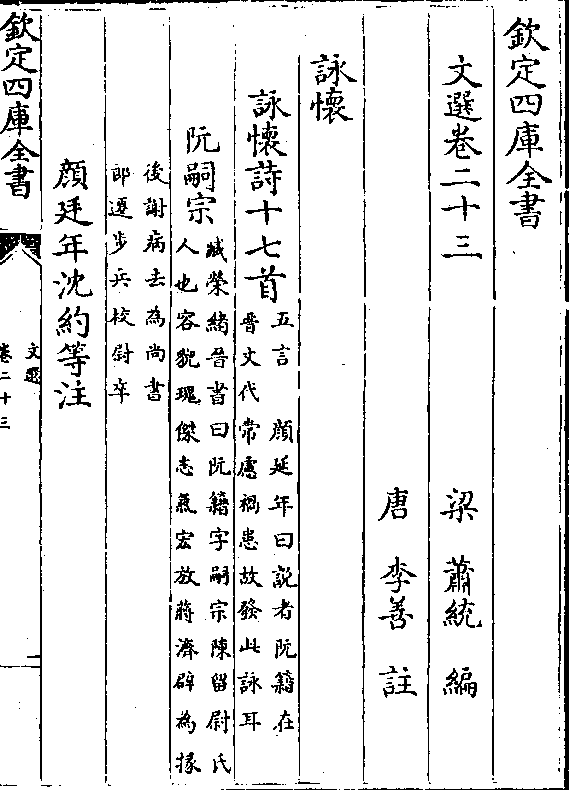 欽定四庫全書
文選卷二十三
梁 蕭統 編
唐 李善 註
詠懷
詠懷詩十七首
五言 顔延年曰説者阮籍在
晉文代常慮禍患故發此詠耳
阮嗣宗
臧榮緒晉書曰阮籍字嗣宗陳留尉氏
人也容貌瑰傑志氣宏放蔣濟辟為掾
後謝病去為尚書
郎遷步兵校尉卒
顔延年沈約等注
欽定四庫全書
文選
卷二十三
一